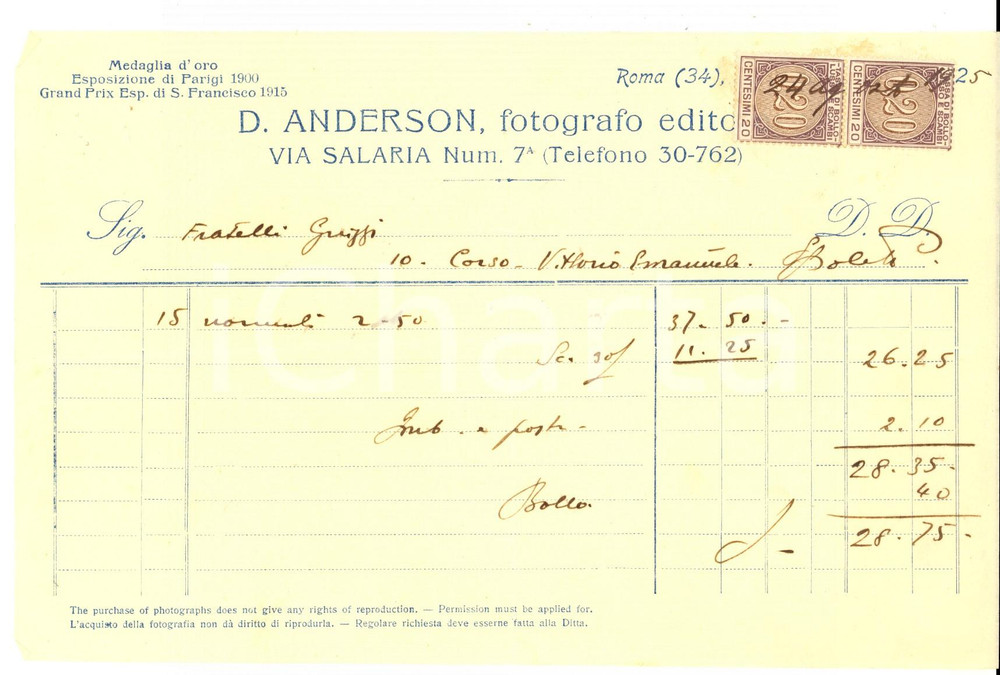 Medaglia d'oro
Esposizione di Parigi 1900
Grand Prix Esp. di S. Francisco 1915
Roma (34), 24 Ag 1925
D. ANDERSON, fotografo edito
VIA SALARIA Num. 7ᴬ (Telefono 30-762)
CENTESIMI 20
0.20
TASSA DI BOLLO
LUSSO E SCAMBI
CENTESIMI 20
0.20
TASSA DI BOLLO
LUSSO E SCAMBI
Sig. Fratelli D. D.
10 - Corso - Vittorio Emanuele.
15 normali 2-50 37. 50. -
Sc. 30% 11. 25 26. 25
Imb. e posta - 2. 10
28. 35 -
Bollo. 40
28. 75 -
iCharta
The purchase of photographs does not give any rights of reproduction. — Permission must be applied for.
L'acquisto della fotografia non dà diritto di riprodurla. — Regolare richiesta deve esserne fatta alla Ditta.